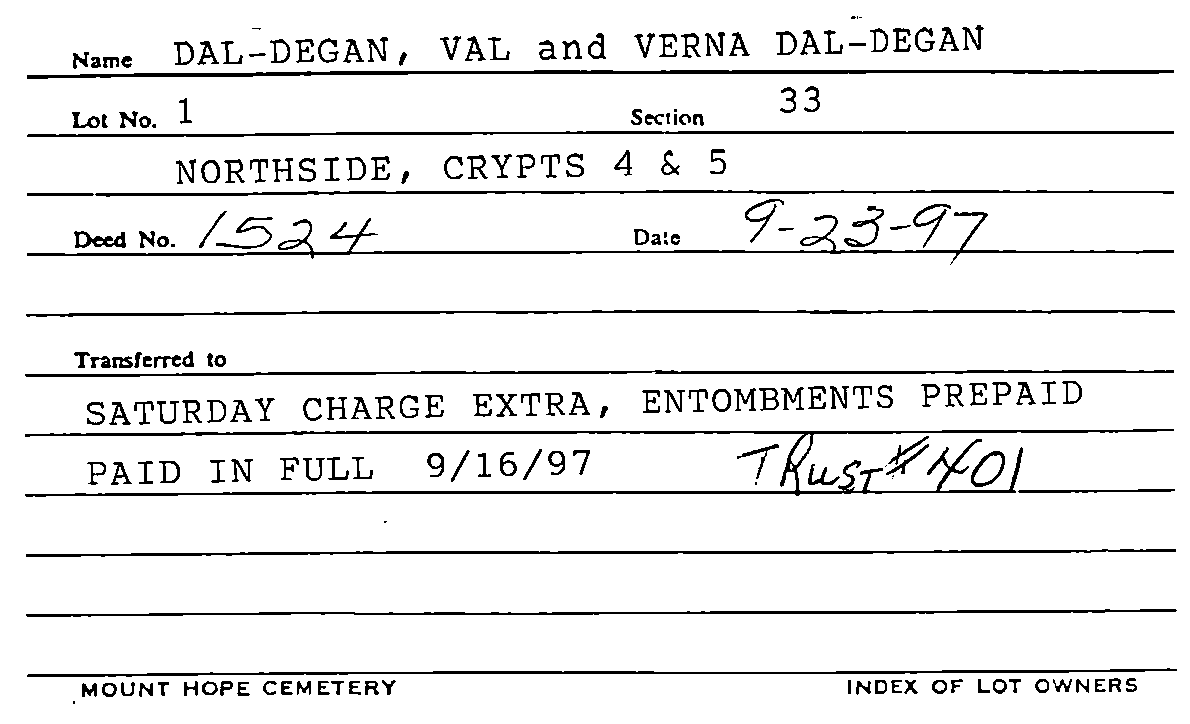 Name DAL-DEGAN, VAL and VERNA DAL-DEGAN
Lot No. 1 Section 33
NORTHSIDE, CRYPTS 4 & 5
Deed No. 1524 Date 9-23-97
Transferred to
SATURDAY CHARGE EXTRA, ENTOMBMENTS PREPAID
PAID IN FULL 9/16/97 TRUST # 401
MOUNT HOPE CEMETERY INDEX OF LOT OWNERS